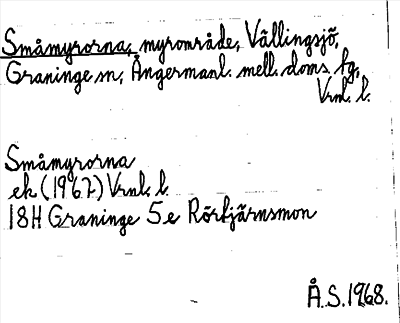 Småmyrorna, myrområde, Vällingsjö,
Graninge sn, Ångermanl. mell. doms. fg,
Vrnl. l.
Småmyrorna
ek (1967) Vrnl. l.
18H Graninge 5e Rörtjärnsmon
Å.S. 1968.